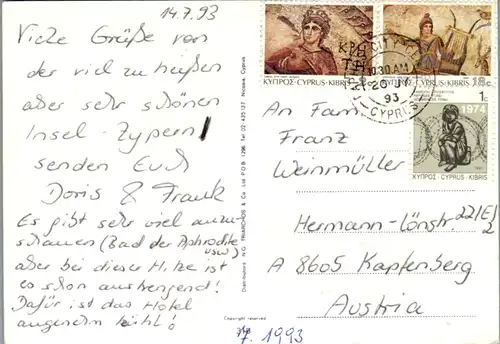 14.7.93
Viele Grüße von
der viel zu heißen
aber sehr schönen
Insel - Zypern!
senden Euch
Doris & Frank
Es gibt sehr viel anzu-
schauen (Bad der Aphrodite
usw)
aber bei dieser Hitze ist
es schon anstrengend!
Dafür ist das Hotel
angenehm kühl!
Distributors: N.G. TRIARCHOS & Co. Ltd P.O.B. 1296, Tel 02-435137 Nicosia, Cyprus
Copyright reserved
ΚΥΠΡΟΣ·CYPRUS·KIBRIS
ΚΥΠΡΟΣ·CYPRUS·KIBRIS
18c
CITY
10.30 AM
93
CYPRUS
1974
1c
ΚΥΠΡΟΣ·CYPRUS·KIBRIS
An Fam.
Franz
Weinmüller
Hermann-Lönstr. 22/E/2
A 8605 Kapfenberg
Austria
7. 1993